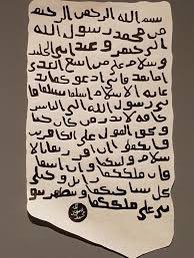 بسم الله الرحمن الرحيم
من محمد رسول الله
وعبد ابني الجلند
السلام على من اتبع الهدى
اما بعد فاني ادعوكما بد
عاية الاسلام اسلما تسلما فا
ني رسول الله الى الناس
كافة لانذر من كان حيا
ويحق القول على الكافرين
وانكما ان اقررتما بالا
سلام وليتكما وان ابيتما
فان ملككما زايل وخيلي
تحل بساحتكما وتظهر نبو
تي على ملككما